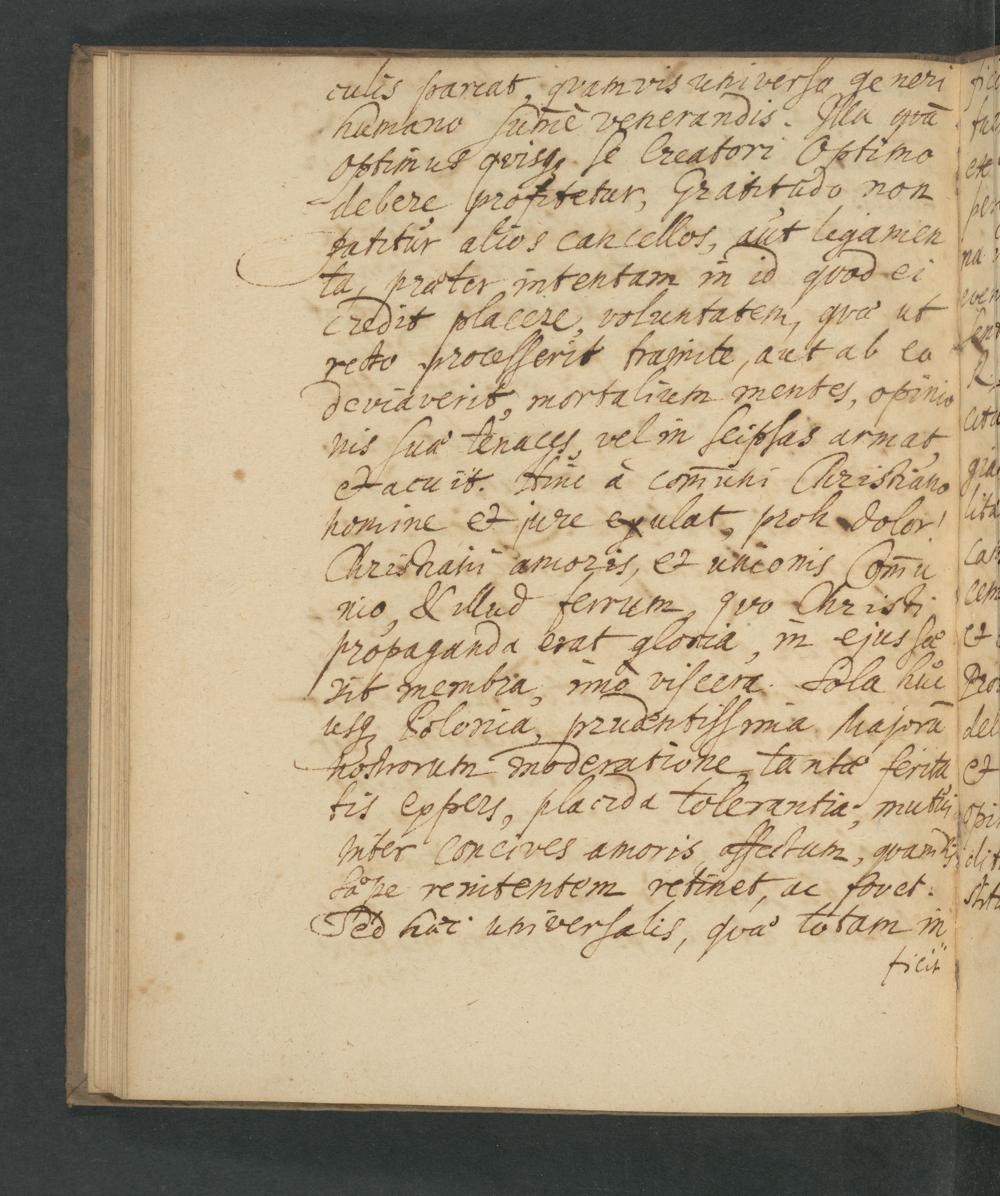 culis parcat, quamvis universo generi
humano sumè venerandis. Illa quā
optimus quisq; se Creatori Optimo
debere profitetur, Gratitudo non
patitur alios cancellos, aut ligamen
ta, præter intentam in id quod ei
credit placere, voluntatem, quæ ut
recto processerit tramite, aut ab eo
deviaverit, mortalium mentes, opinio
nis suæ tenaces, vel in seipsas armat,
et acuit. Hinc à com̄uni Christiano
homine et jure exulat, proh dolor!
Christiani amoris, et unionis Com̄u
nio, & illud ferrum, quo Christi
propaganda erat gloria, in ejus sæ
vit membra, imò viscera. Sola huc
usq; Polonia, prudentissima Majorū
nostrorum moderatione, tantæ ferita
tis expers, placida tolerantia, mutui
inter concives amoris affectum, quamvis
sæpe renitentem retinet, ac fovet.
Sed hāc universalis, quæ totam in
ficit